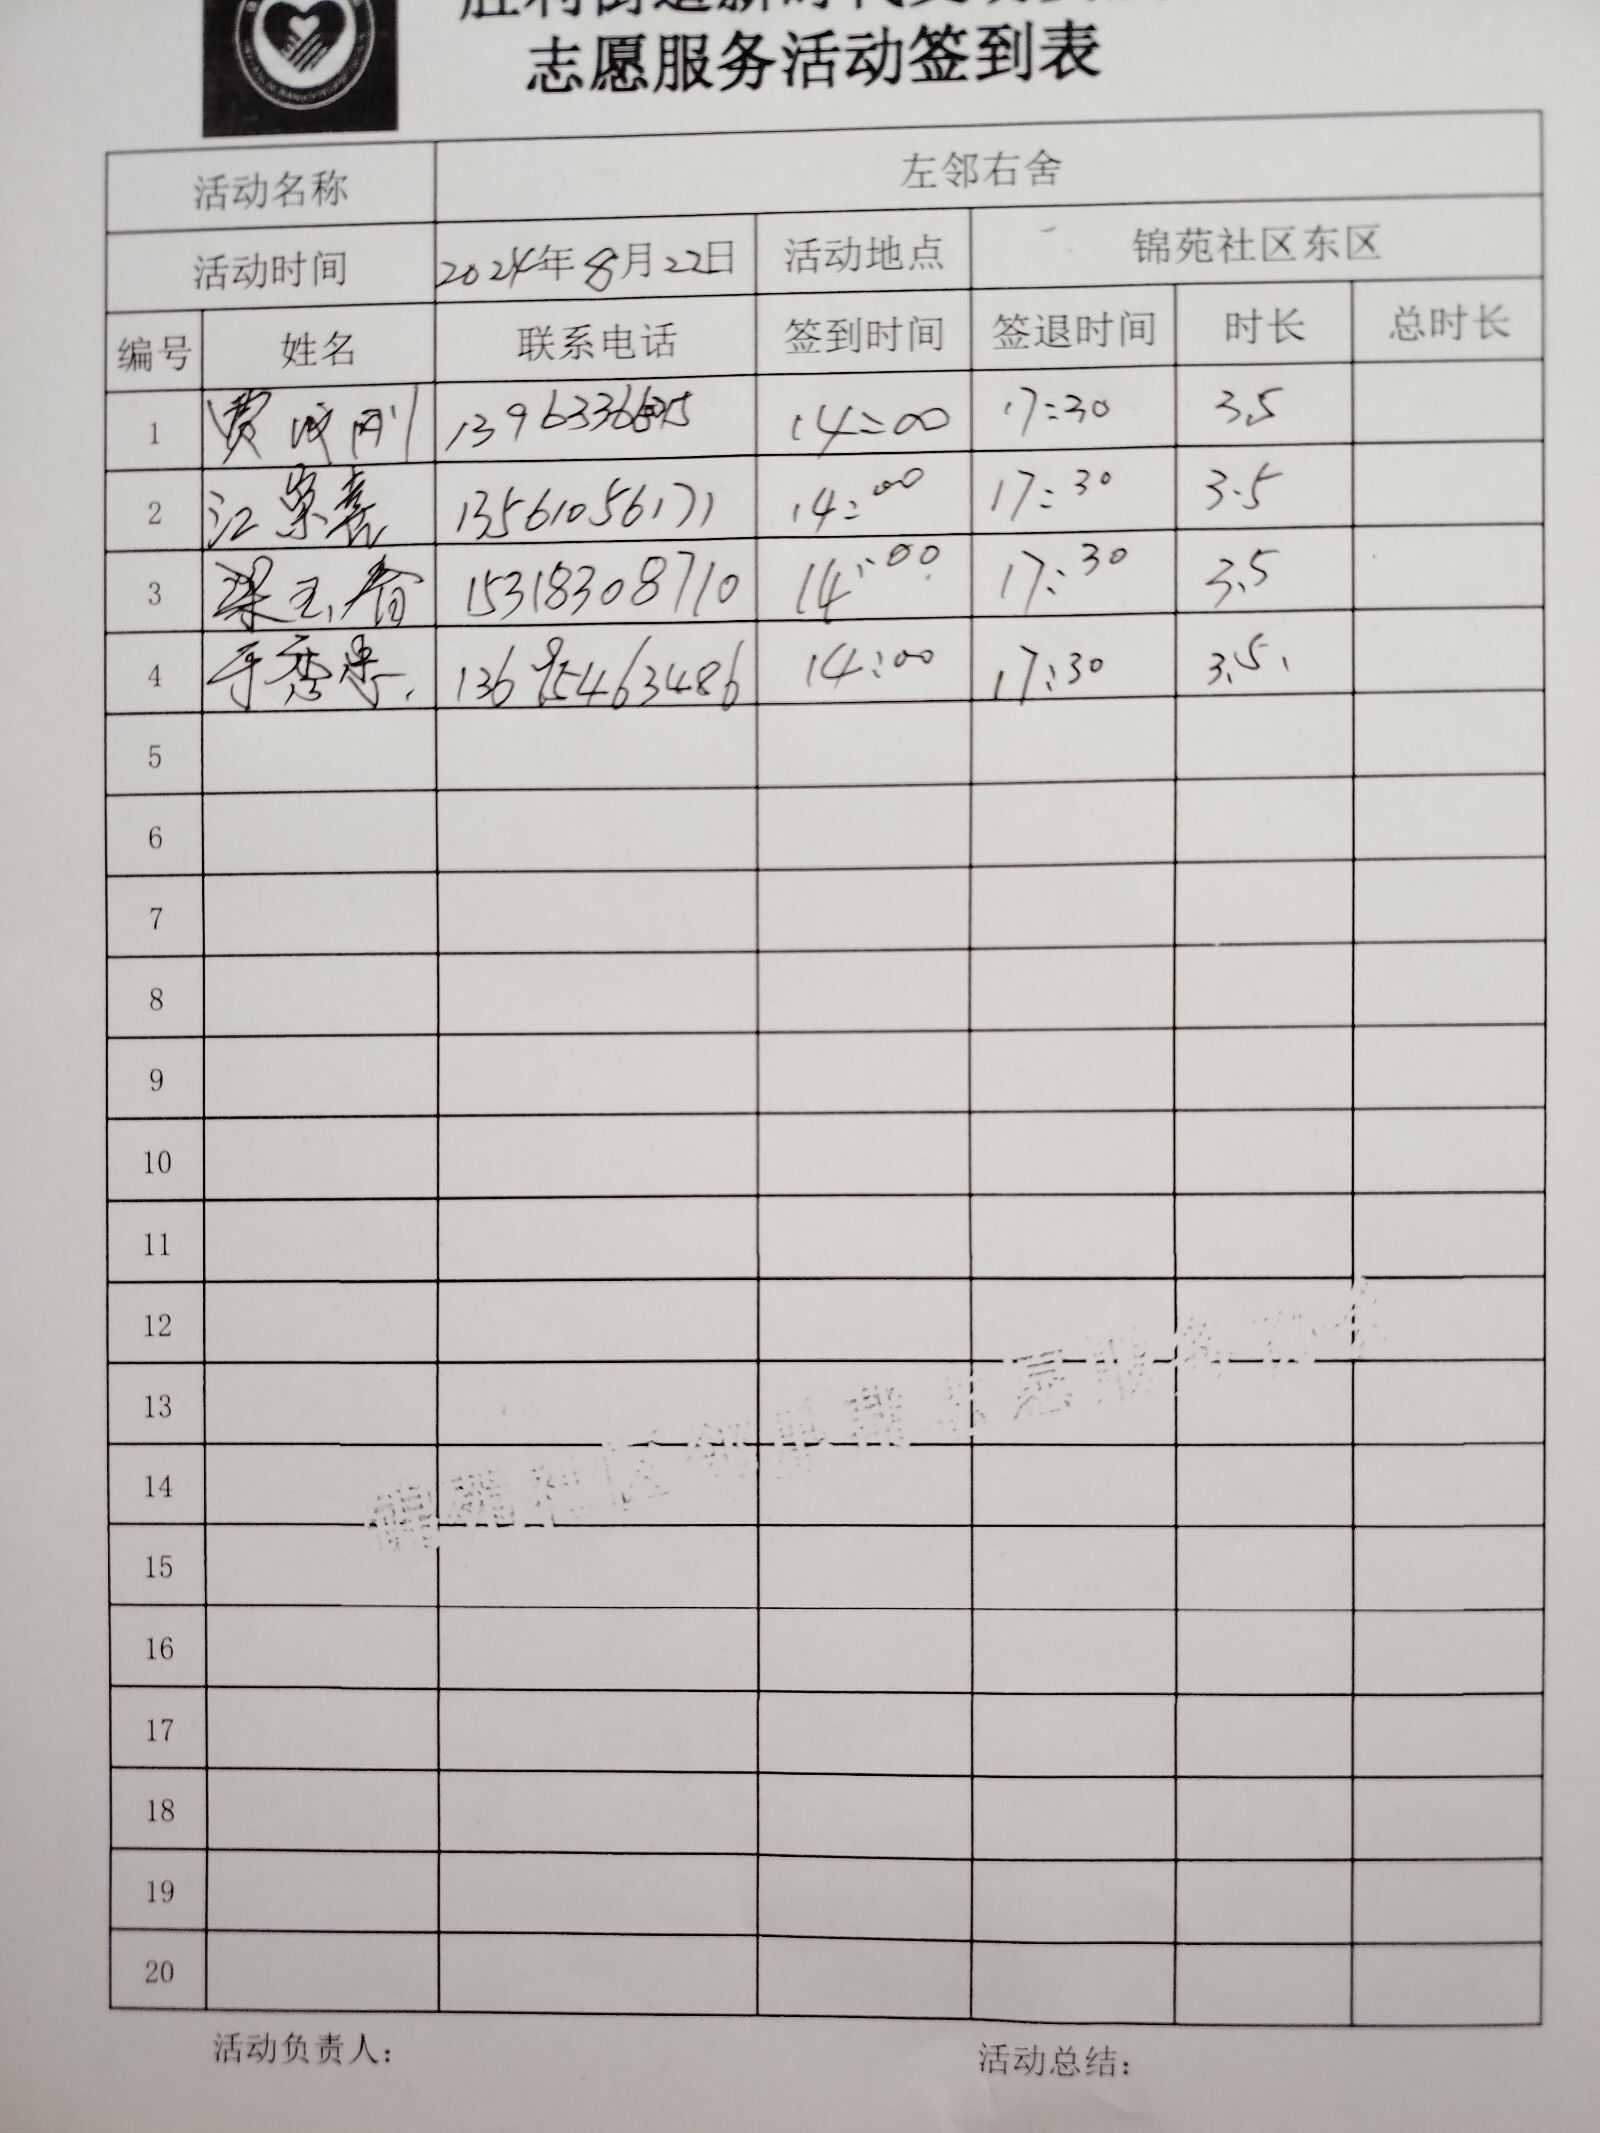 志愿服务活动签到表
活动名称 左邻右舍
活动时间 2024年8月22日 活动地点 锦苑社区东区
编号 姓名 联系电话 签到时间 签退时间 时长 总时长
1 14:00 17:30 3.5
2 江崇喜 13561056171 14:00 17:30 3.5
3 梁玉 15318308710 14:00 17:30 3.5
4 14:00 17:30 3.5
5
6
7
8
9
10
11
12
13
14
15
16
17
18
19
20
活动负责人: 活动总结: